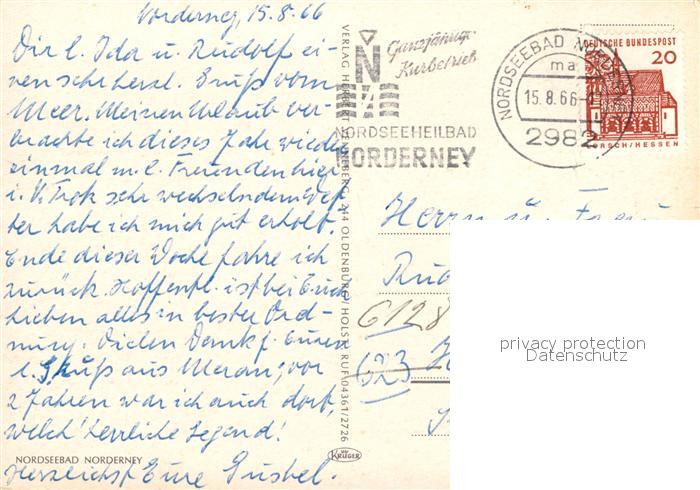 Norderney, 15.8.66
Dir l. Ida u. Rudolf ei-
nen sehr herzl. Gruß vom
Meer. Meinen Urlaub ver-
brachte ich dieses Jahr wieder
einmal m. l. Freunden hier
u. trotz sehr wechselndem Wet-
ter habe ich mich gut erholt.
Ende dieser Woche fahre ich
zurück. Hoffentl. ist bei Euch
Lieben alles in bester Ord-
nung. Vielen Dank f. Euren
l. Gruß aus Meran, vor
2 Jahren war ich auch dort,
welch' herrliche Gegend!
NORDSEEBAD NORDERNEY
Herzlichst Eure Gustel.
VERLAG HERBERT 244 OLDENBURG/HOLST. RUF 04361/2726
KRÜGER
Ganzjährig
Kurbetrieb
NORDSEEHEILBAD
NORDERNEY
NORDSEEBAD NORDERNEY
ma
15.8.66
2982
DEUTSCHE BUNDESPOST
20
LORSCH/HESSEN
Herrn u. Frau
Rud
6128
623
privacy protection
Datenschutz